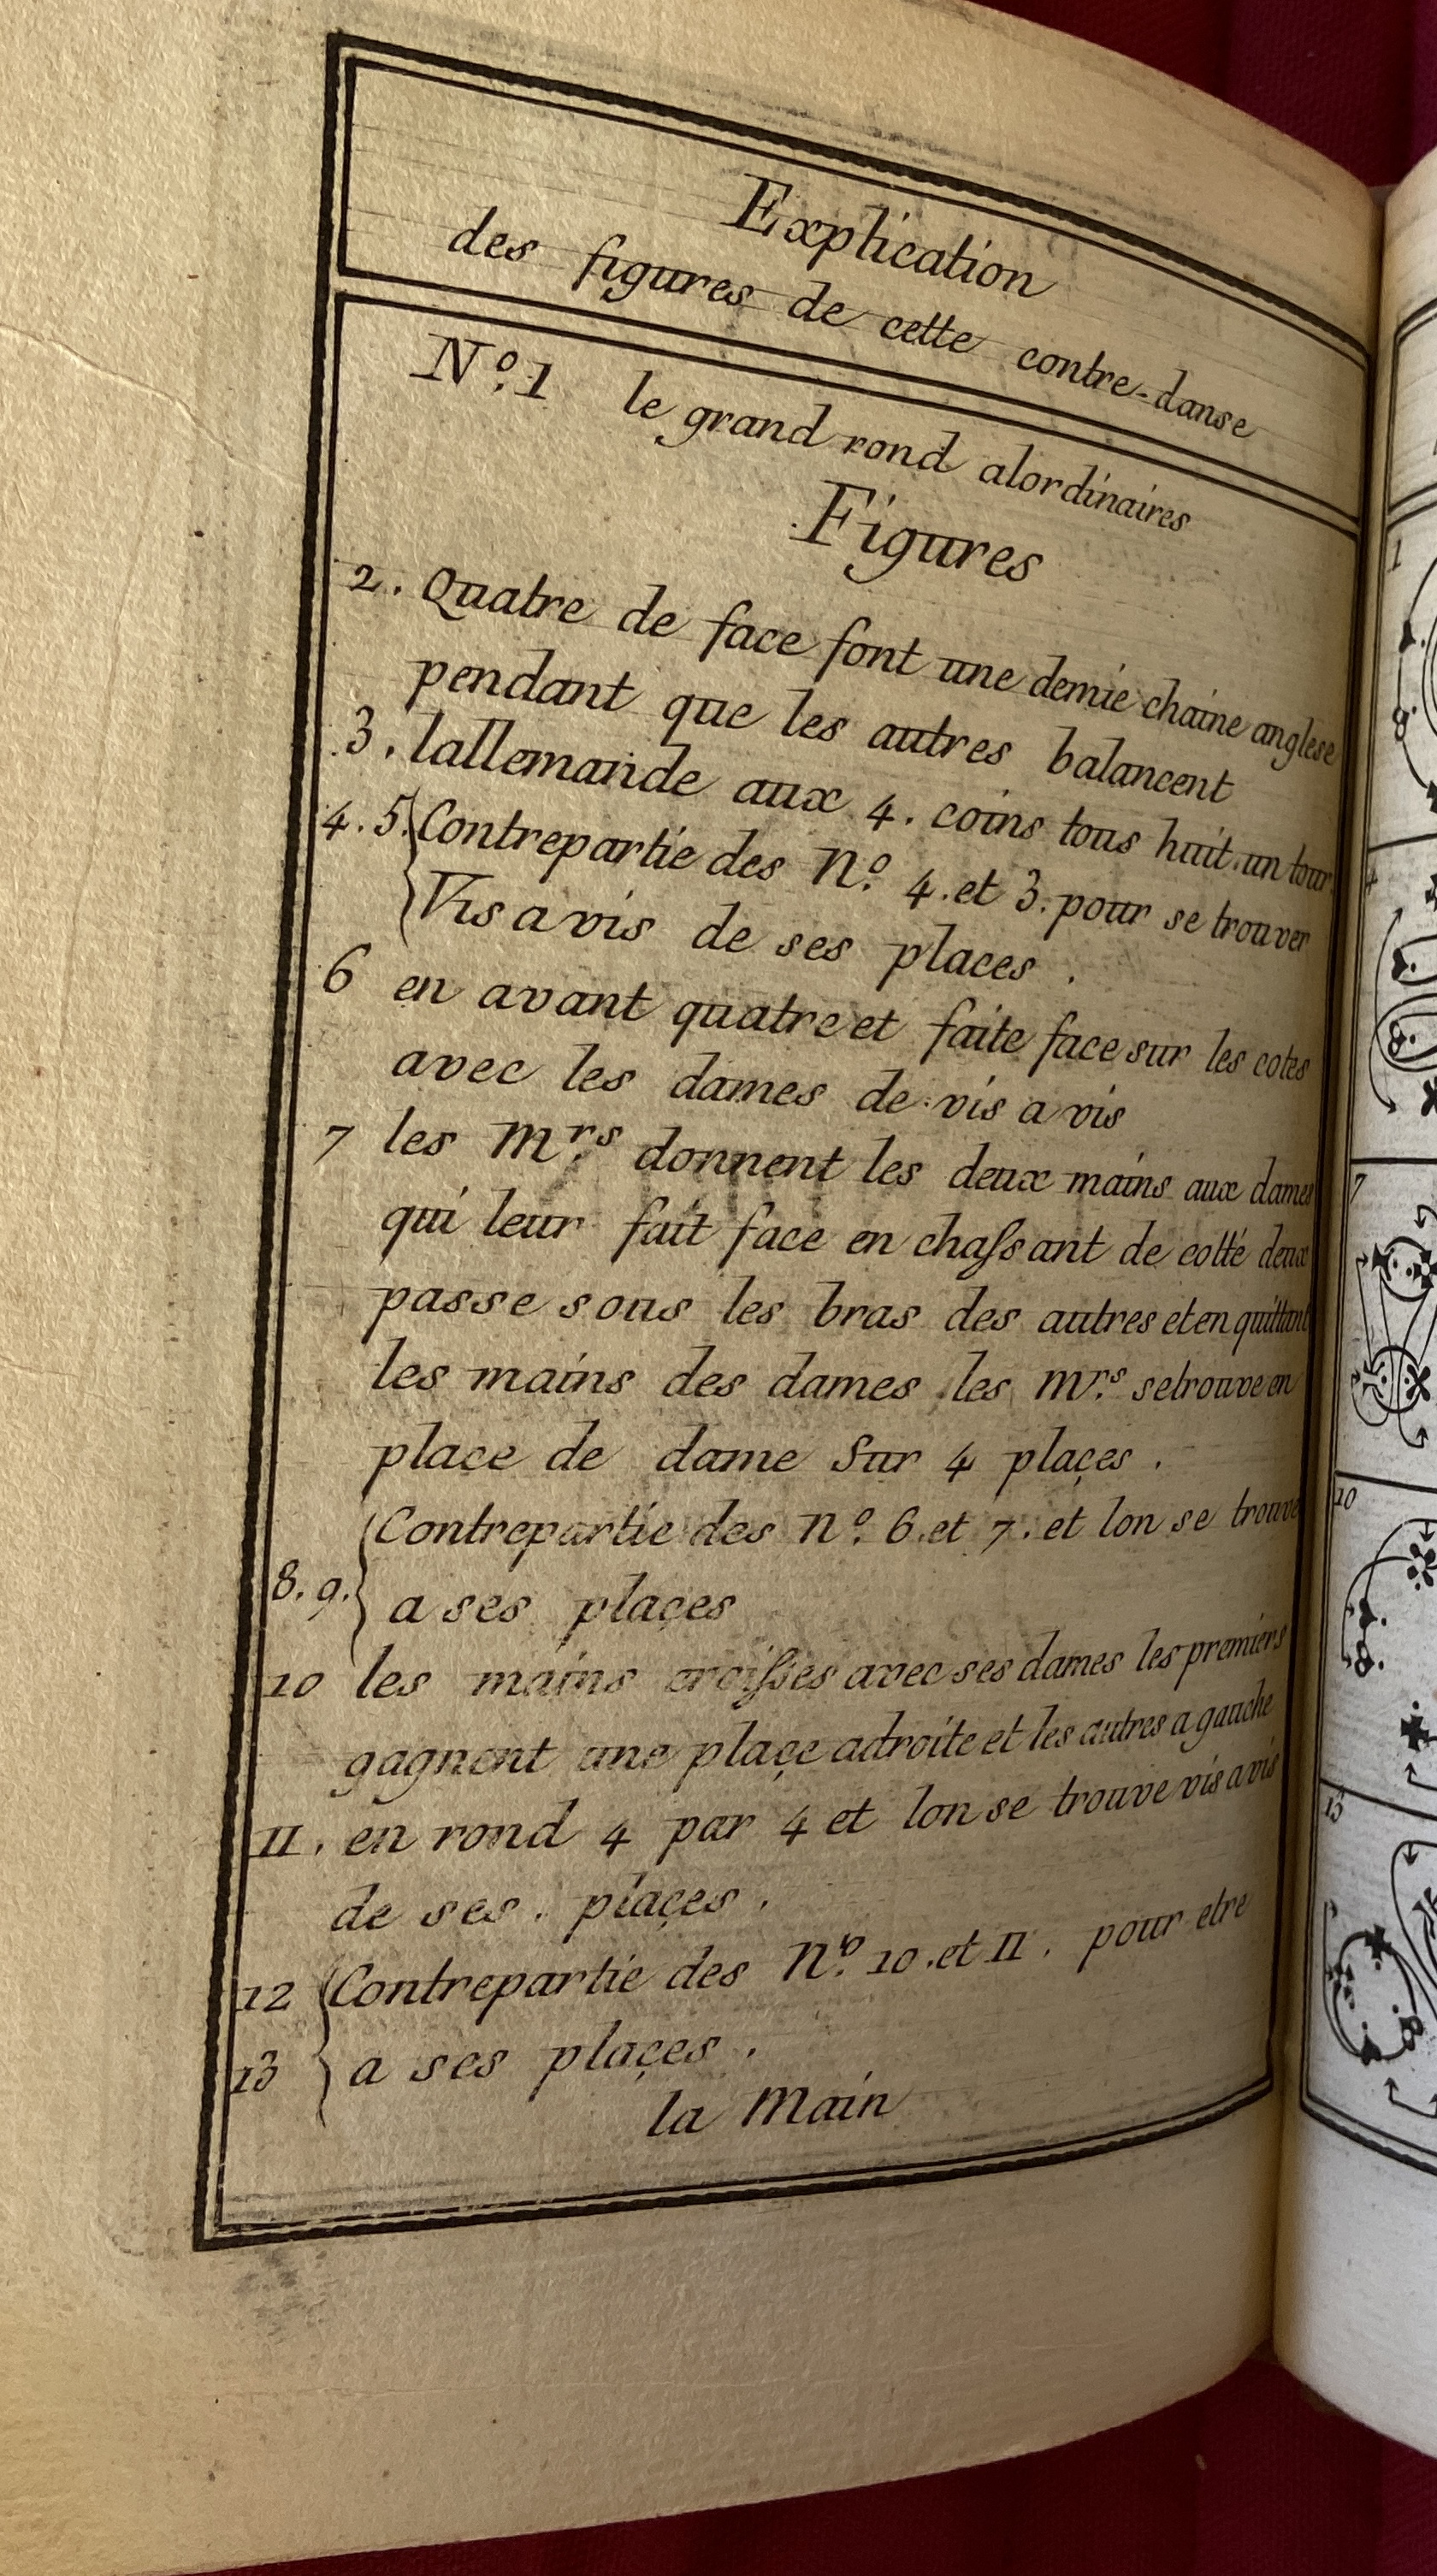 Explication
des figures de cette contre-danse
N.º 1 le grand rond alordinaires
Figures
2. Quatre de face font une demie chaine anglese
pendant que les autres balancent
3. lallemande aux 4. coins tous huit un tour
4. 5. Contrepartie des N.º 4. et 3. pour se trouver
Vis a vis de ses places.
6 en avant quatre et faite face sur les cotes
avec les dames de vis a vis
7 les M.rs donnent les deux mains aux dames
qui leur fait face en chaſsant de cotté deux
passe sous les bras des autres et en quittant
les mains des dames les M.rs se trouve en
place de dame Sur 4 plaçes.
Contrepartie des N.º 6. et 7. et lon se trouve
8. 9. a ses plaçes
10 les mains croiſses avec ses dames les premiers
gagnent une plaçe adroite et les autres a gauche
II. en rond 4 par 4 et lon se trouve vis a vis
de ses. plaçes.
12 Contrepartie des N.º 10. et II. pour etre
13 a ses plaçes.
la Main
1
4
7
10
13